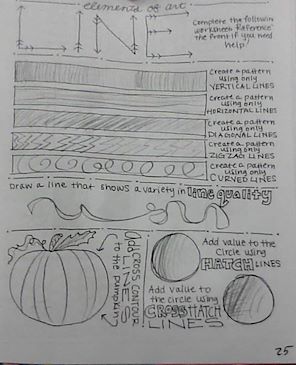 elements of art
LINE
Complete the followin
worksheet. Reference
the front if you need
help!
Create a pattern
using only
VERTICAL LINES
Create a pattern
using only
HORIZONTAL LINES
Create a pattern
using only
DIAGONAL LINES
Create a pattern
using only
ZIGZAG LINES
Create a pattern
using only
CURVED LINES
Draw a line that shows a variety in line quality
Add CROSS CONTOUR
LINES
to the pumpkin
Add value to the
Circle using
HATCH LINES
Add value to
the circle using
CROSS HATCH
LINES
25